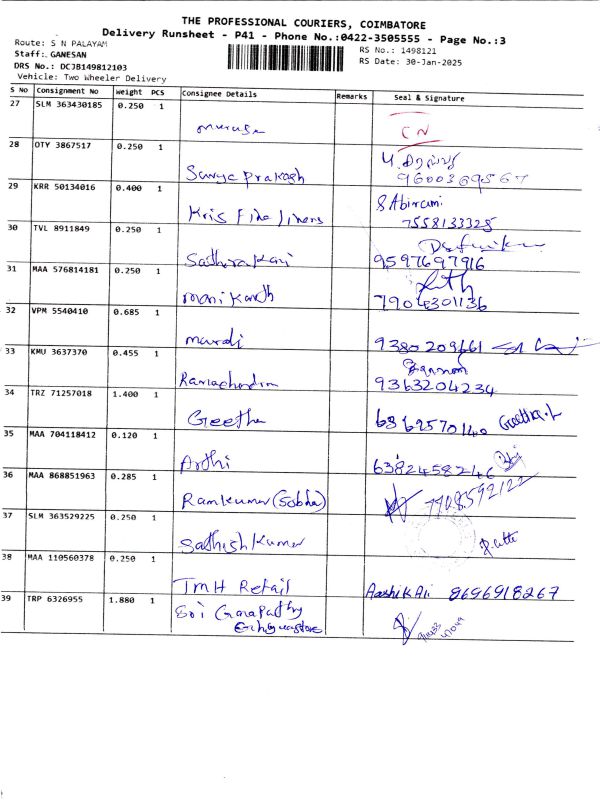 THE PROFESSIONAL COURIERS, COIMBATORE
Delivery Runsheet - P41 - Phone No.:0422-3505555 - Page No.:3
Route: S N PALAYAM
RS No.: 1498121
Staff: GANESAN
RS Date: 30-Jan-2025
DRS No.: DCJB149812103
Vehicle: Two Wheeler Delivery
S No Consignment No Weight PCS Consignee Details Remarks Seal & Signature
27 SLM 363430185 0.250 1
Murugan CN
28 OTY 3867517 0.250 1
Surya Prakash 9600369567
29 KRR 50134016 0.400 1 S Abirami
Kris Fine liners 7558133325
30 TVL 8911849 0.250 1
9597697916
31 MAA 576814181 0.250 1
Manikanth 7904301136
32 VPM 5540410 0.685 1
Murali 9380209661
33 KMU 3637370 0.455 1
Ramachandran 9363204234
34 TRZ 71257018 1.400 1
Geetha 6369570140 Geetha.L
35 MAA 704118412 0.120 1
Arthi 6382458246
36 MAA 868851963 0.285 1
Ramkumar (Sobha) 7908592122
37 SLM 363529225 0.250 1
Sathish Kumar
38 MAA 110560378 0.250 1
TMH Retail Aashik Ali 8696918267
39 TRP 6326955 1.880 1
Sri Ganapathy